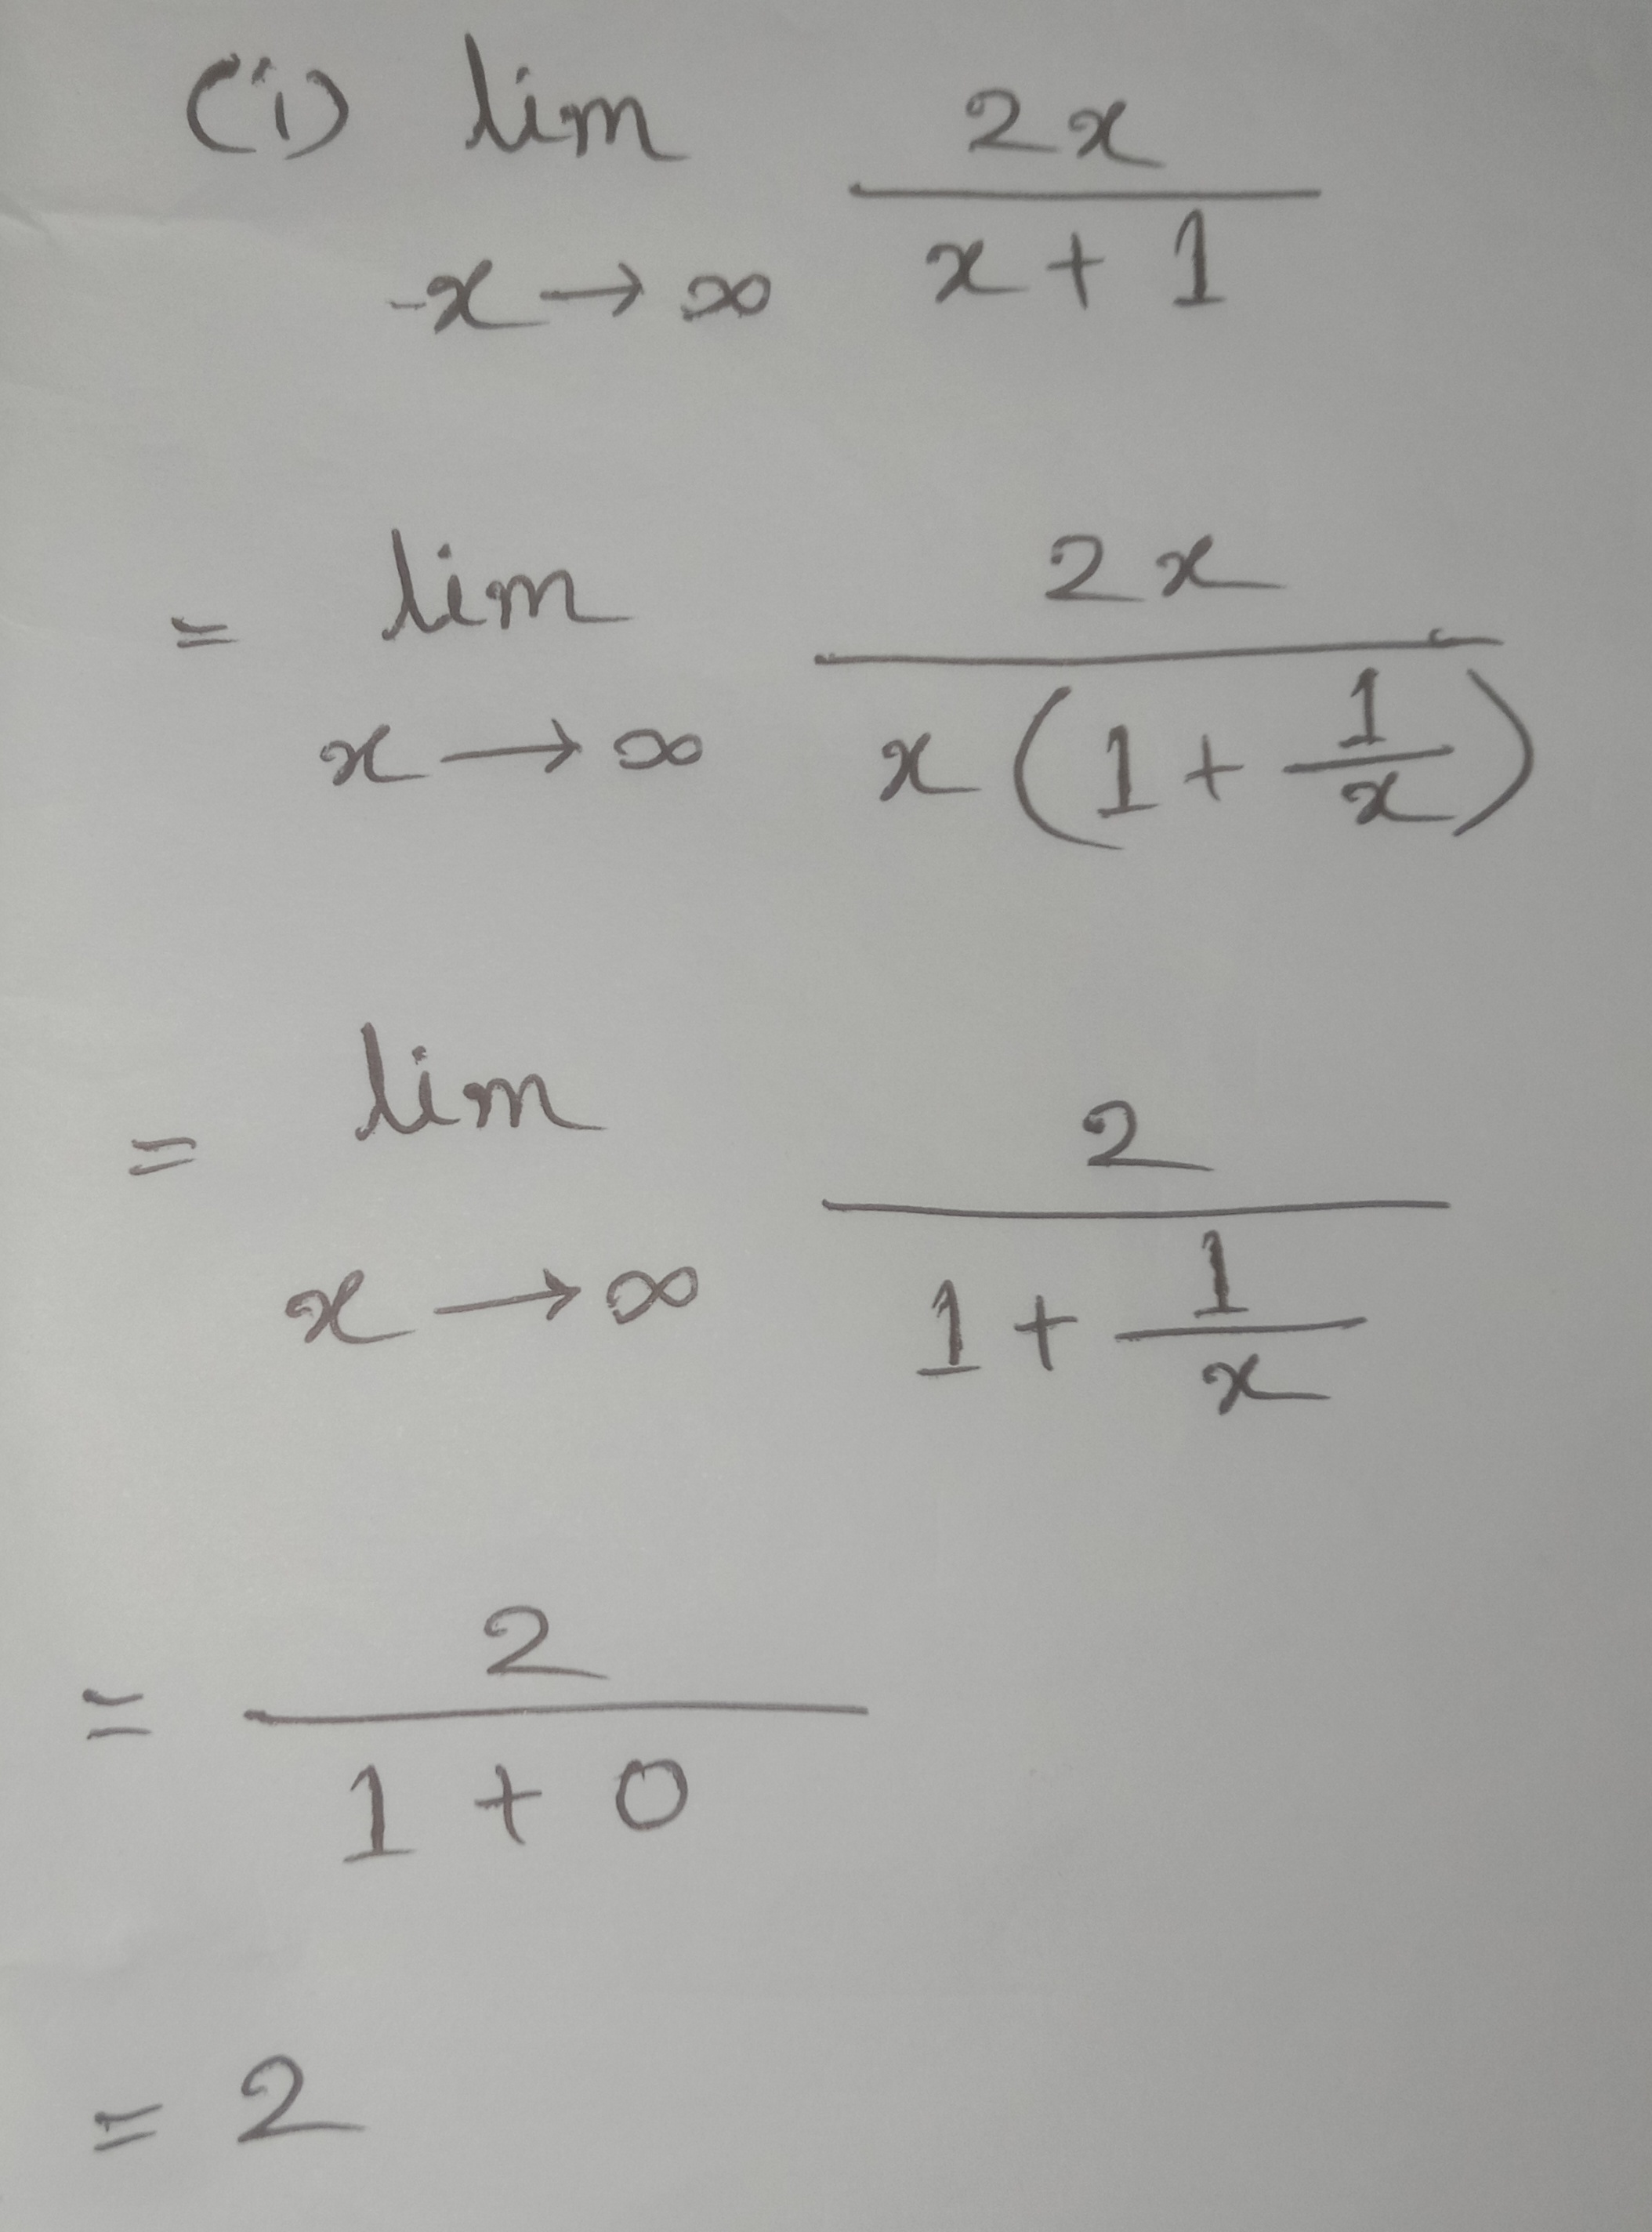 (i) lim 2x / (x + 1)
x → ∞
= lim 2x / (x(1 + 1/x))
x → ∞
= lim 2 / (1 + 1/x)
x → ∞
= 2 / (1 + 0)
= 2